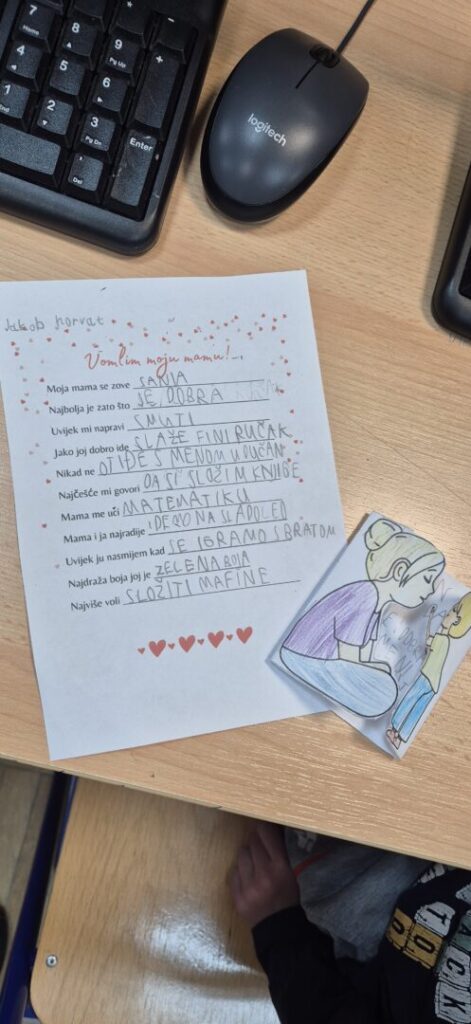 7
Home
8
9
Pg Up
-
+
4
5
6
1
End
2
3
Pg Dn
Enter
Del
logitech
Jakob Horvat
Vomlim moju mamu!...
Moja mama se zove SANJA
Najbolja je zato što JE DOBRA
Uvijek mi napravi SMUTI
Jako joj dobro ide SLAŽE FINI RUČAK
Nikad ne OTIĐE S MENOM U DUĆAN
Najčešće mi govori DA SI SLOŽIM KNJIGE
Mama me uči MATEMATIKU
Mama i ja najradije IDEMO NA SLADOLED
Uvijek ju nasmijem kad SE IGRAMO S BRATOM
Najdraža boja joj je ZELENA BOJA
Najviše voli SLOŽITI MAFINE